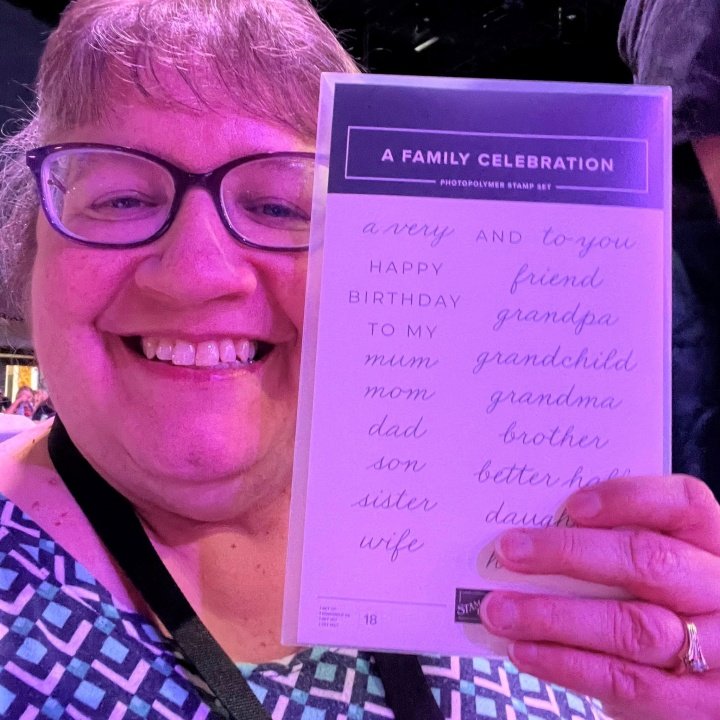 A FAMILY CELEBRATION
PHOTOPOLYMER STAMP SET
a very
HAPPY
BIRTHDAY
TO MY
mum
mom
dad
son
sister
wife
AND to you
friend
grandpa
grandchild
grandma
brother
better half
daugh
h
18
STAM